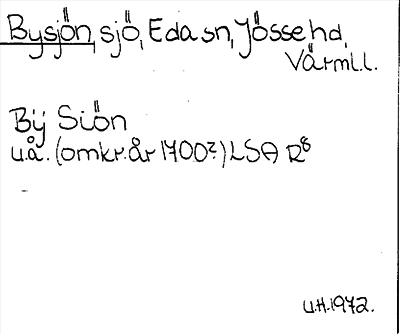 Bysjön, sjö, Eda sn, Jösse hd,
Värml.l.
Bÿ Siön
u.å. (omkr. år 1700?) LSA R8
U.H. 1972.